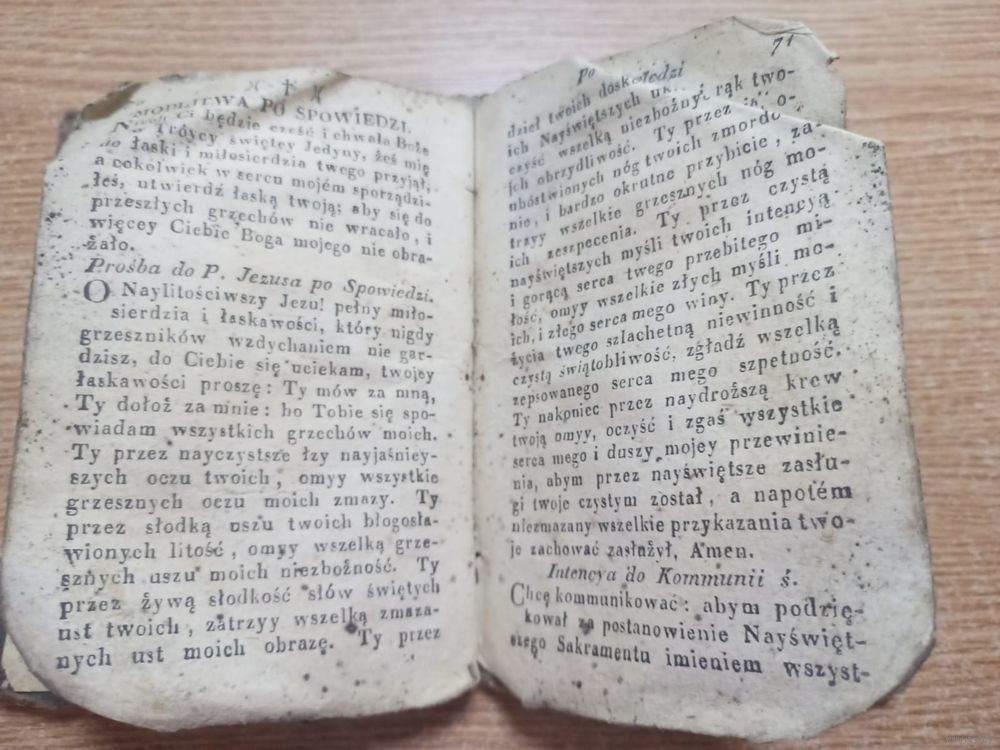 )( † )(
MODLITWA PO SPOWIEDZI.
Ci będzie cześć i chwała Boże
w Tróycy świętey Jedyny, żeś mię
do łaski i miłosierdzia twego przyjął,
a cokolwiek w sercu mojém sporządzi-
łeś, utwierdź łaską twoją; aby się do
przeszłych grzechów nie wracało, i
więcey Ciebie Boga mojego nie obra-
żało.
Prośba do P. Jezusa po Spowiedzi.
O Naylitościwszy Jezu! pełny miło-
sierdzia i łaskawości, który nigdy
grzeszników wzdychaniem nie gar-
dzisz, do Ciebie się uciekam, twojey
łaskawości proszę: Ty mów za mną,
Ty dołoż za mnie: bo Tobie się spo-
wiadam wszystkich grzechów moich.
Ty przez nayczystsze łzy nayjaśniey-
szych oczu twoich, omyy wszystkie
grzesznych oczu moich zmazy. Ty
przez słodką uszu twoich błogosła-
wionych litość, omyy wszelką grze-
sznych uszu moich niezbożność. Ty
przez żywą słodkość słów świętych
ust twoich, zatrzyy wszelką zmaza-
nych ust moich obrazę. Ty przez
71
Po
dzieł twoich
ich Nayświętszych rąk two-
czyść wszelką niezbożnych
ich obrzydliwość. Ty przez
ubóstwionych nóg twoich
nie, i bardzo okrutne przybicie, za-
trzyy wszelkie grzesznych nóg mo-
ich zeszpecenia. Ty przez czystą
nayświętszych myśli twoich intencyą
i gorącą serca twego przebitego mi-
łość, omyy wszelkie złych myśli mo-
ich, i złego serca mego winy. Ty przez
życia twego szlachetną niewinność i
czystą świątobliwość, zgładź wszelką
zepsowanego serca mego szpetność.
Ty nakoniec przez naydroższą krew
twoją omyy, oczyść i zgaś wszystkie
serca mego i duszy mojey przewinie-
nia, abym przez nayświętsze zasłu-
gi twoje czystym został, a napotém
niezmazany wszelkie przykazania two-
je zachować zasłużył, Amen.
Intencya do Kommunii ś.
Chcę kommunikować: abym podzię-
kował za postanowienie Nayświęt-
szego Sakramentu imieniem wszyst-